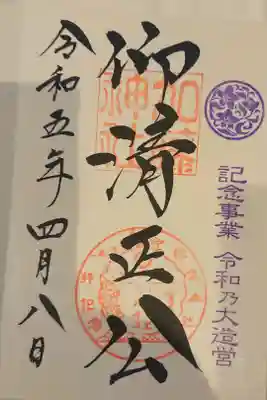 記念事業 令和乃大造営
仰清正公
加藤神社
令和五年四月八日